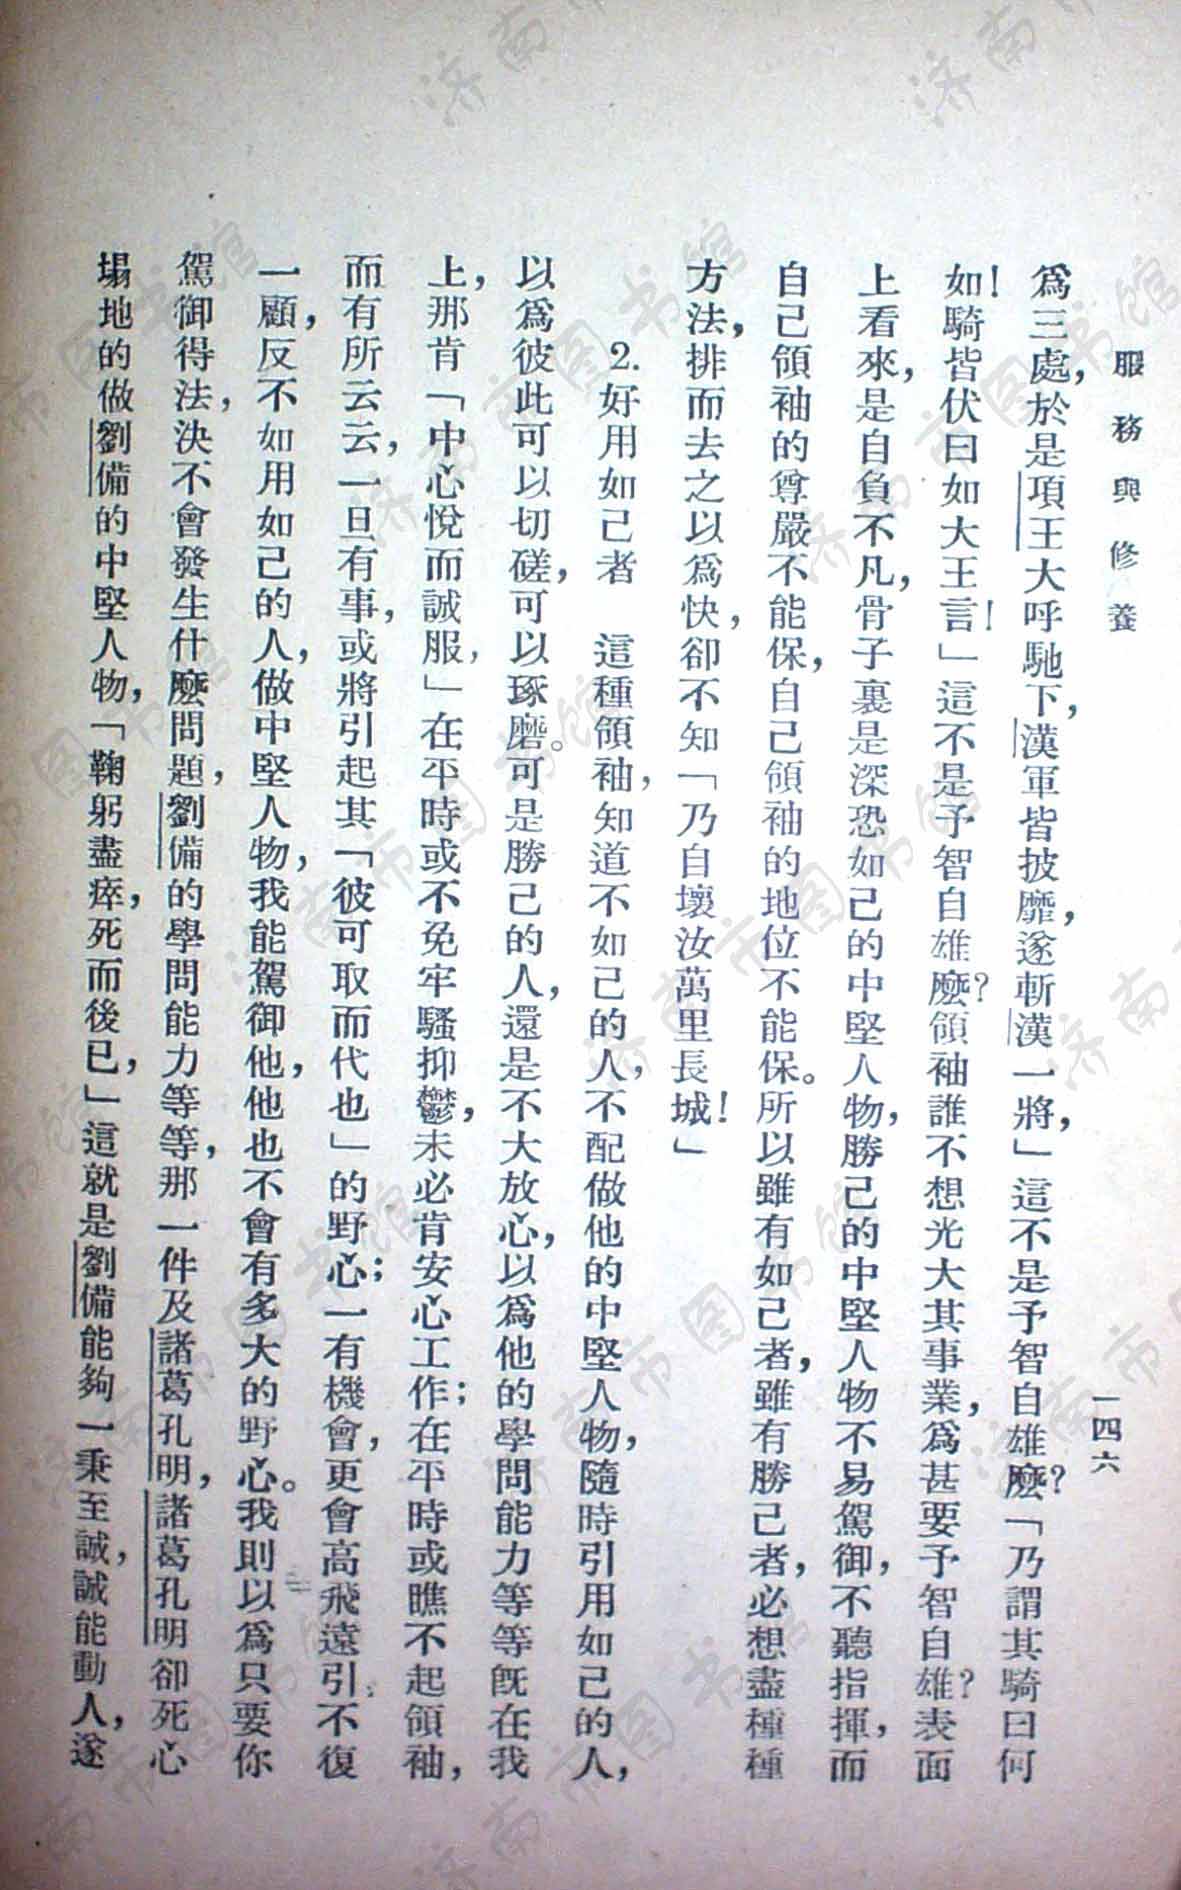 服務與修養
一四六
爲三處，於是項王大呼馳下，漢軍皆披靡，遂斬漢一將，」這不是予智自雄麼？「乃謂其騎曰何
如！騎皆伏曰如大王言！」這不是予智自雄麼？領袖誰不想光大其事業，爲甚要予智自雄？表面
上看來，是自負不凡，骨子裏是深恐如己的中堅人物，勝己的中堅人物不易駕御，不聽指揮，而
自己領袖的尊嚴不能保，自己領袖的地位不能保。所以雖有如己者，雖有勝己者，必想盡種種
方法，排而去之以爲快，卻不知「乃自壞汝萬里長城！」
2.好用如己者　這種領袖，知道不如己的人，不配做他的中堅人物，隨時引用如己的人，
以爲彼此可以切磋，可以琢磨。可是勝己的人，還是不大放心，以爲他的學問能力等等旣在我
上，那肯「中心悅而誠服，」在平時或不免牢騷抑鬱，未必肯安心工作；在平時或瞧不起領袖，
而有所云云，一旦有事，或將引起其「彼可取而代也」的野心；一有機會，更會高飛遠引，不復
一顧，反不如用如己的人，做中堅人物，我能駕御他，他也不會有多大的野心。我則以爲只要你
駕御得法，決不會發生什麼問題，劉備的學問能力等等，那一件及諸葛孔明，諸葛孔明卻死心
塌地的做劉備的中堅人物，「鞠躬盡瘁，死而後已，」這就是劉備能夠一秉至誠，誠能動人，遂
济南市图书馆